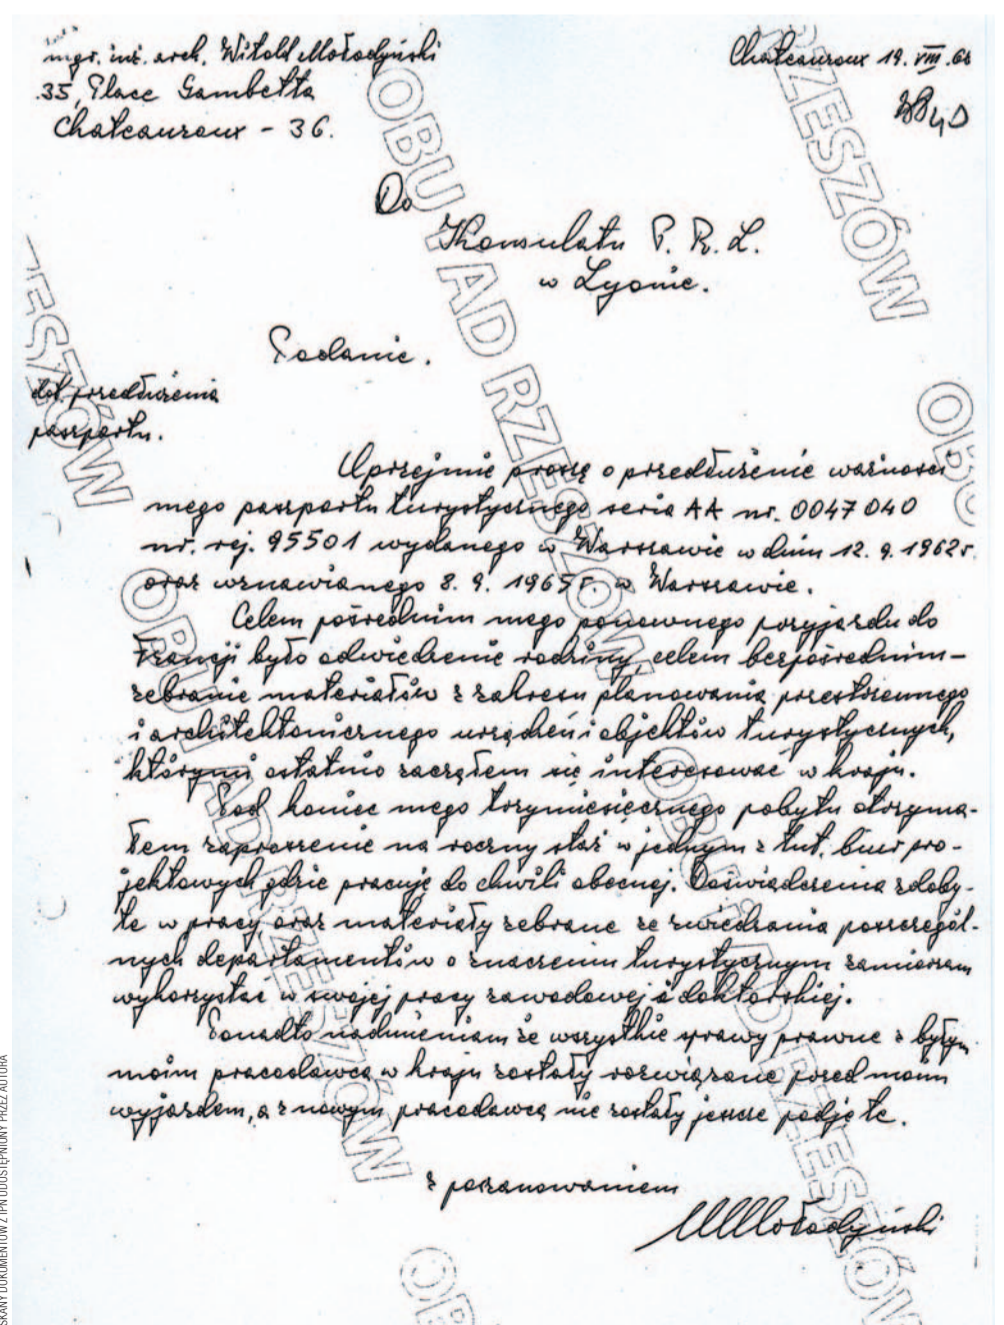 mgr. inż. arch. Witold Mołodyński
35, Place Gambetta
Chateauroux - 36.
Chateauroux 19. VIII. 66
Do
Konsulatu P. R. L.
w Lyonie.
Podanie.
dot. przedłużenia
paszportu.
Uprzejmie proszę o przedłużenie ważności
mego paszportu turystycznego seria AA nr. 0047040
nr. rej. 95501 wydanego w Warszawie w dniu 12. 9. 1962 r.
oraz wznawianego 8. 9. 1965 r. w Warszawie.
Celem pośrednim mego ponownego przyjazdu do
Francji było odwiedzenie rodziny, celem bezpośrednim -
zebranie materiałów z zakresu planowania przestrzennego
i architektonicznego urządzeń i objektów turystycznych,
którymi ostatnio zacząłem się interesować w kraju.
Pod koniec mego trzymiesięcznego pobytu otrzyma-
łem zaproszenie na roczny staż w jednym z tut. biur pro-
jektowych gdzie pracuję do chwili obecnej. Doświadczenia zdoby-
te w pracy oraz materiały zebrane ze zwiedzania poszczegól-
nych departamentów o znaczeniu turystycznym zamierzam
wykorzystać w swojej pracy zawodowej i doktorskiej.
Ponadto nadmieniam że wszystkie sprawy prawne z byłym
moim pracodawcą w kraju zostały rozwiązane przed moim
wyjazdem, a z nowym pracodawcą nie zostały jeszcze podjęte.
z poszanowaniem
WMołodyński
OBU AD RZESZÓW
RZESZÓW
RZESZÓW
OBU
OBU AD RZESZÓW
OBU AD RZESZÓW
OB
SKANY DOKUMENTÓW Z IPN UDOSTĘPNIONY PRZEZ AUTORA